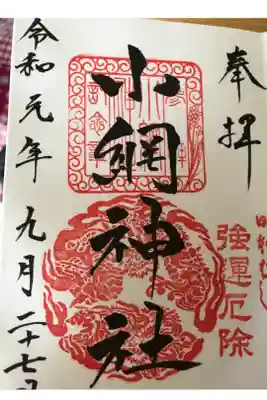 奉拝
強運厄除
小網神社
令和元年九月二十七日